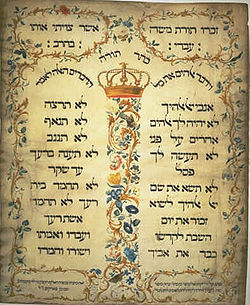 זכרו תורת משה
עבדי
אשר צויתי אותו
בחרב
כתר תורה
וידבר אלהים את כל
הדברים האלה לאמר
אנכי יי אלהיך
לא יהיה לך אלהים
אחרים על פני
לא תעשה לך
פסל
לא תשא את שם
יי אלהיך לשוא
זכור את יום
השבת לקדשו
כבד את אביך
לא תרצח
לא תנאף
לא תגנב
לא תענה ברעך
עד שקר
לא תחמד בית
רעך לא תחמד
אשת רעך
ועבדו ואמתו
ושורו וחמרו